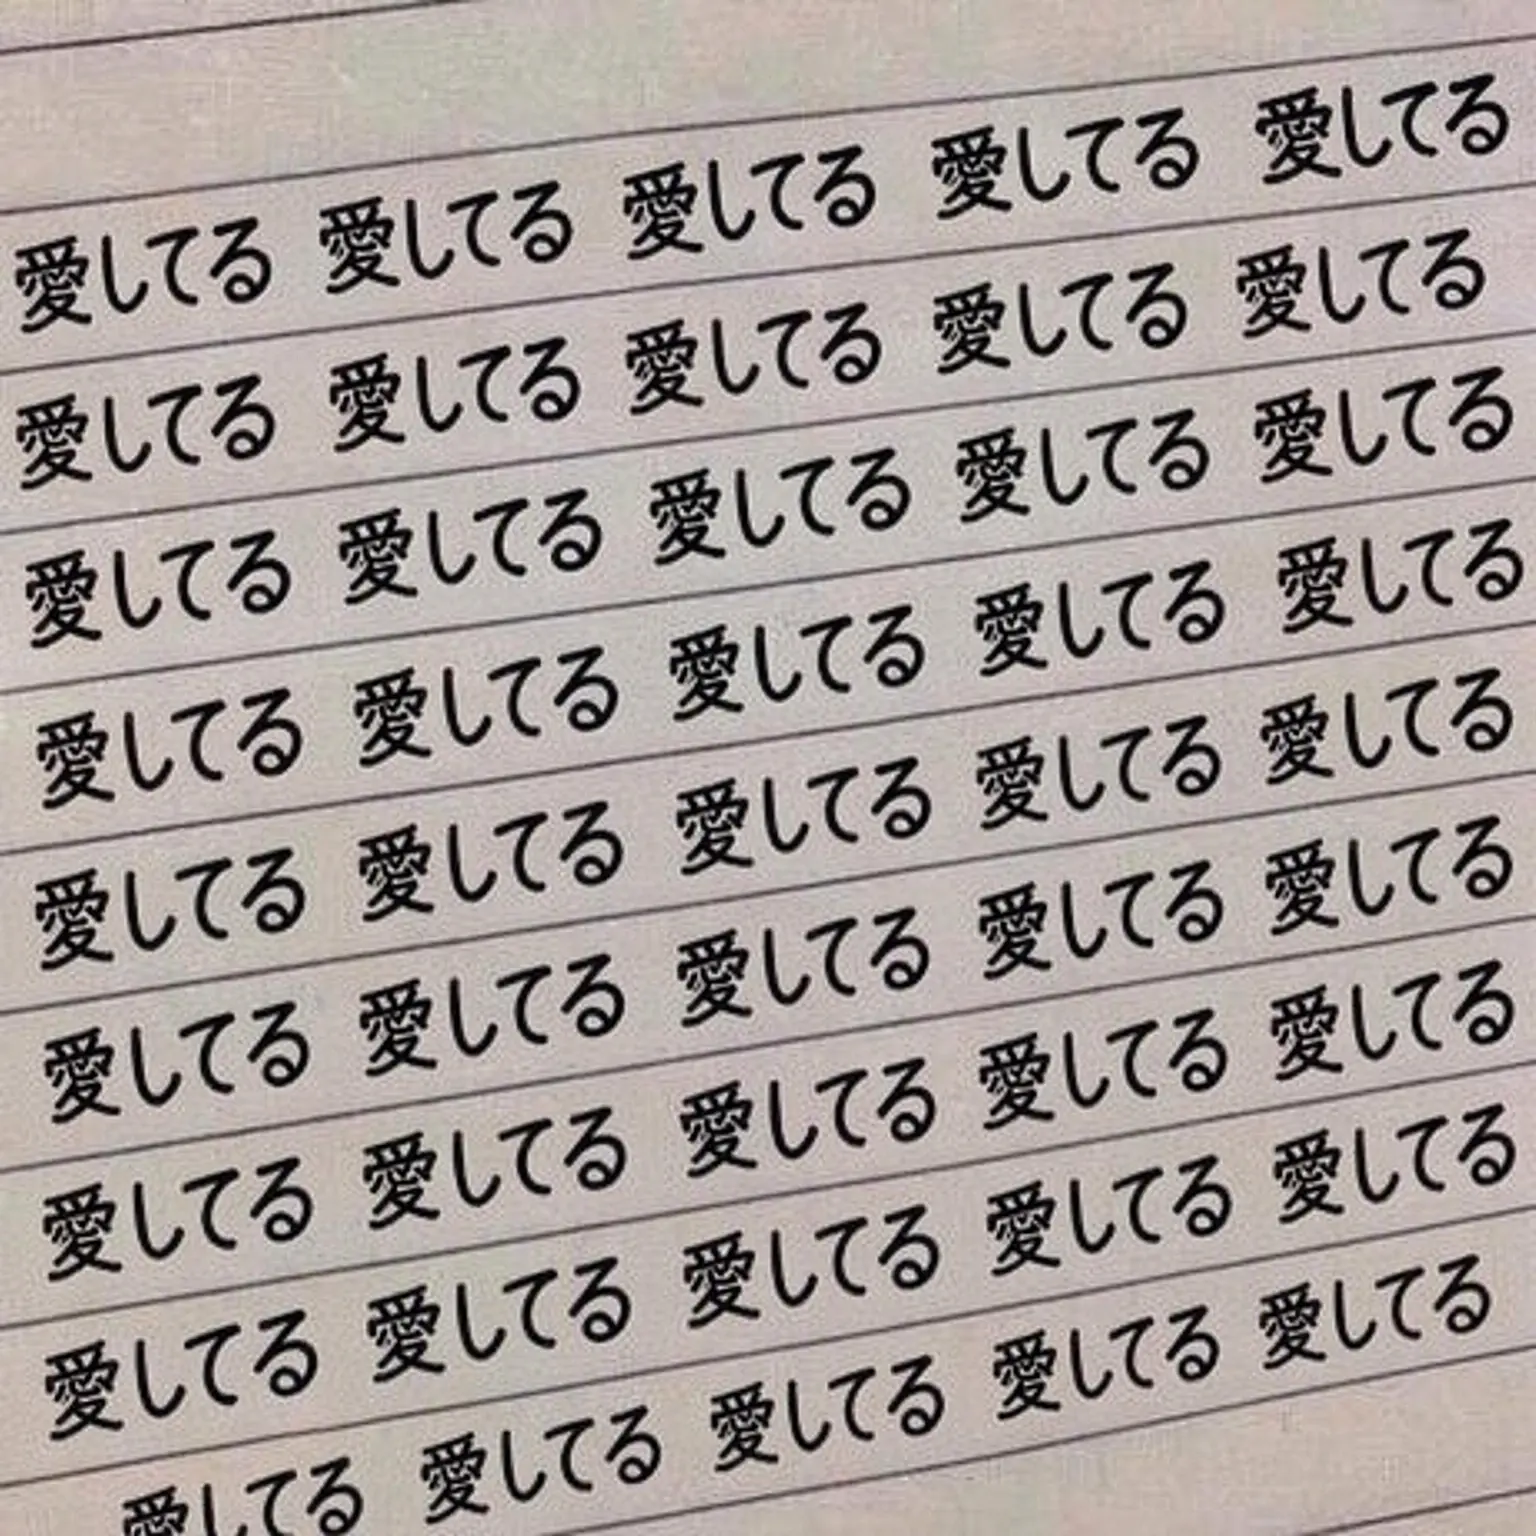 愛してる 愛してる 愛してる 愛してる 愛してる
愛してる 愛してる 愛してる 愛してる 愛してる
愛してる 愛してる 愛してる 愛してる 愛してる
愛してる 愛してる 愛してる 愛してる 愛してる
愛してる 愛してる 愛してる 愛してる 愛してる
愛してる 愛してる 愛してる 愛してる 愛してる
愛してる 愛してる 愛してる 愛してる 愛してる
愛してる 愛してる 愛してる 愛してる 愛してる
愛してる 愛してる 愛してる 愛してる 愛してる